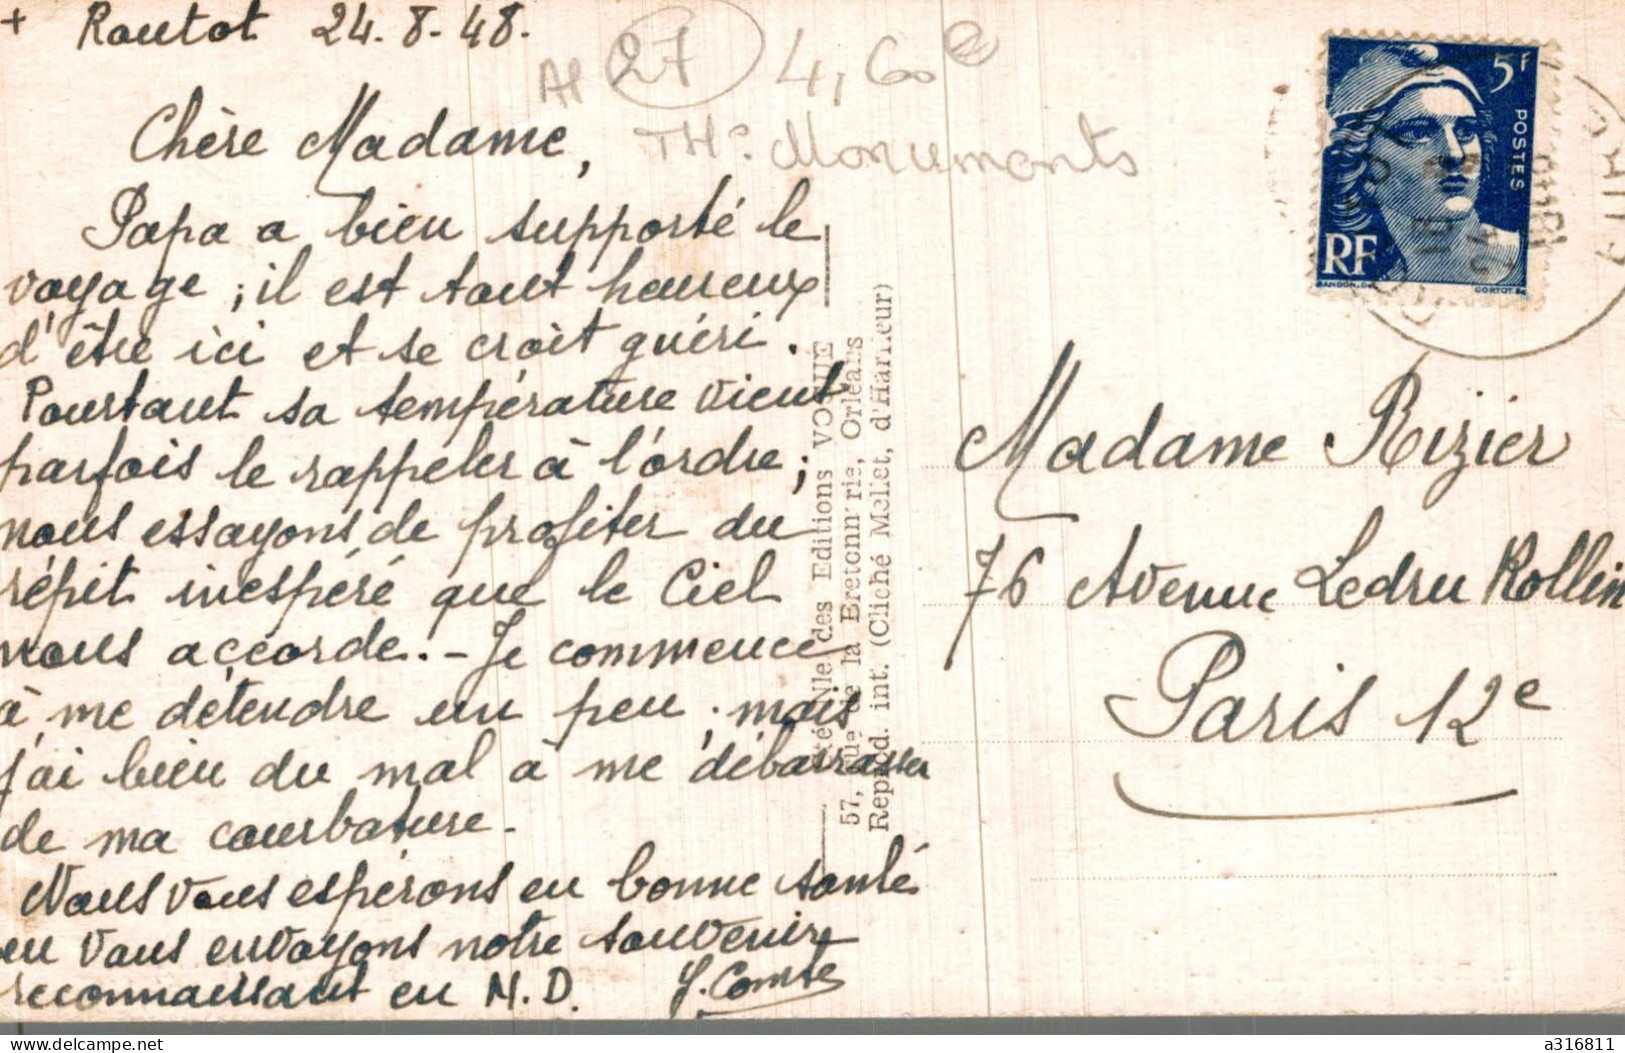 + Routot 24-8-48.
AP 27 4,60 e
THc Monuments
Chère Madame,
Papa a bien supporté le
voyage ; il est tout heureux
d'être ici et se croit guéri.
Pourtant sa température vient
parfois le rappeler à l'ordre ;
nous essayons de profiter du
répit inespéré que le Ciel
nous accorde. - Je commence
à me détendre un peu, mais
j'ai bien du mal à me débarrasser
de ma courbature.
Nous vous espérons en bonne santé
en vous envoyons notre souvenir
reconnaissant en N.D. Y. Comte
té Nle des Editions VOGUE
57, Rue de la Bretonn'rie, Orléans
Reprod. int. (Cliché Mellet, d'Harfleur)
5F
POSTES
RF
GANDON. DEL
CORTOT. SC
Madame Rizier
76 Avenue Ledru Rollin
Paris 12e
Delcampe.net
a316811